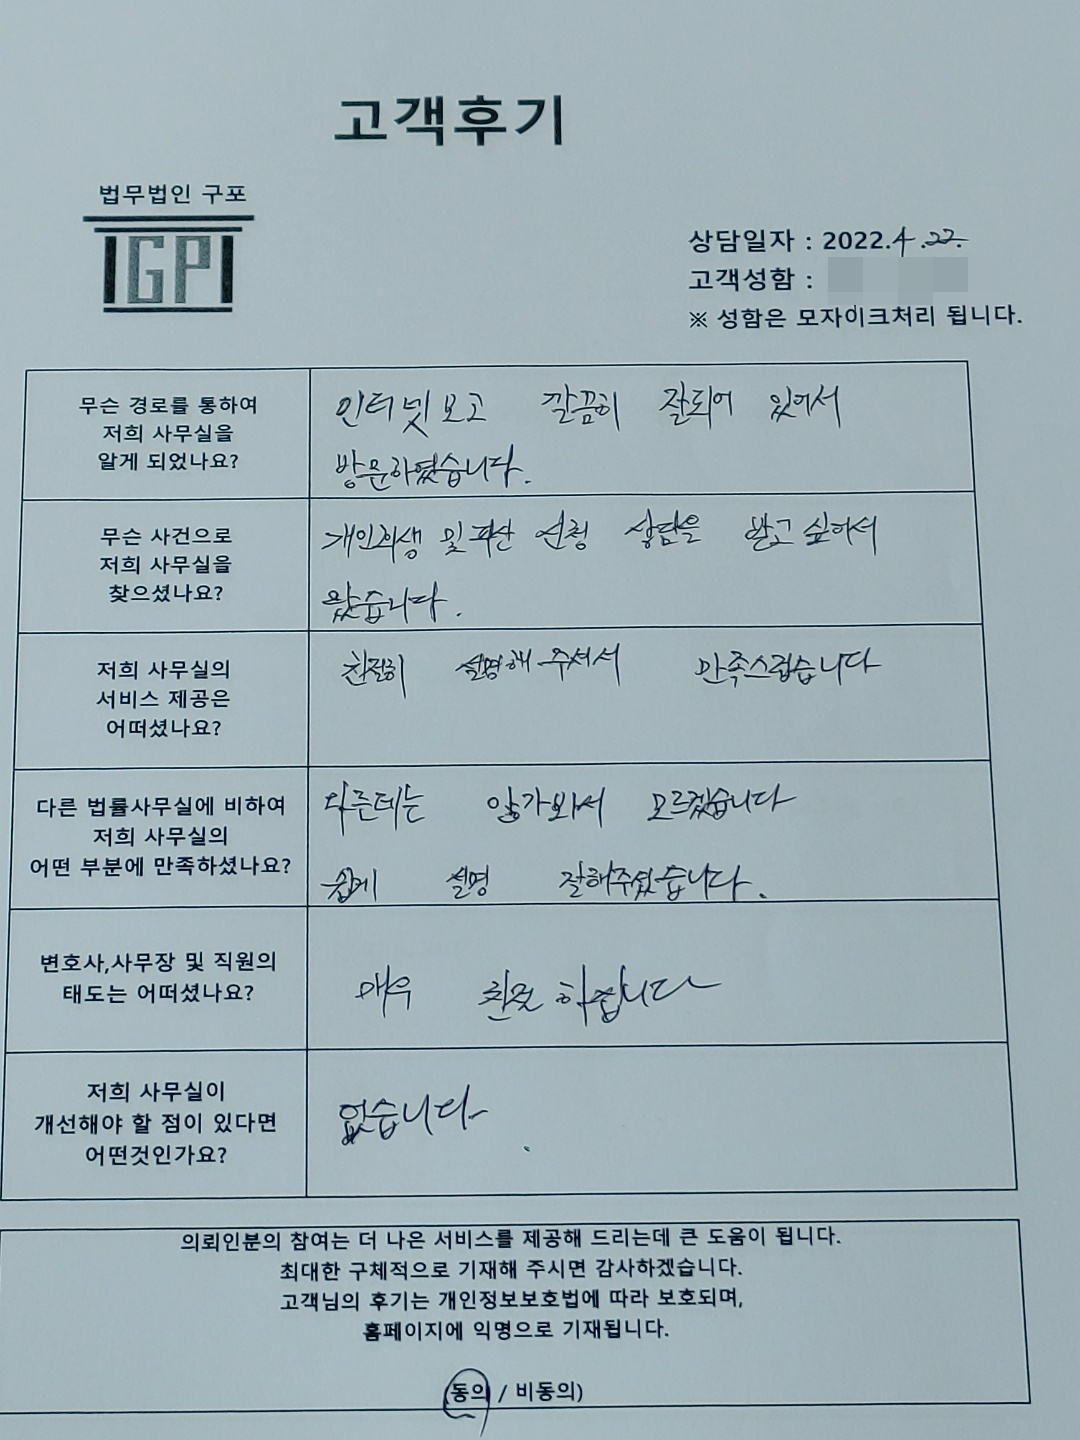 고객후기
법무법인 구포
IGPI
상담일자 : 2022.4.22.
고객성함 :
※ 성함은 모자이크처리 됩니다.
무슨 경로를 통하여
저희 사무실을
알게 되었나요?
인터넷보고 깔끔히 잘되어 있어서
방문하였습니다.
무슨 사건으로
저희 사무실을
찾으셨나요?
개인회생 및 파산 신청 상담을 받고 싶어서
왔습니다.
저희 사무실의
서비스 제공은
어떠셨나요?
친절히 설명해 주셔서 만족스럽습니다
다른 법률사무실에 비하여
저희 사무실의
어떤 부분에 만족하셨나요?
다른데는 않가봐서 모르겠습니다
쉽게 설명 잘해주셨습니다.
변호사,사무장 및 직원의
태도는 어떠셨나요?
매우 친절 하십니다
저희 사무실이
개선해야 할 점이 있다면
어떤것인가요?
없습니다.
의뢰인분의 참여는 더 나은 서비스를 제공해 드리는데 큰 도움이 됩니다.
최대한 구체적으로 기재해 주시면 감사하겠습니다.
고객님의 후기는 개인정보보호법에 따라 보호되며,
홈페이지에 익명으로 기재됩니다.
동의 / 비동의)